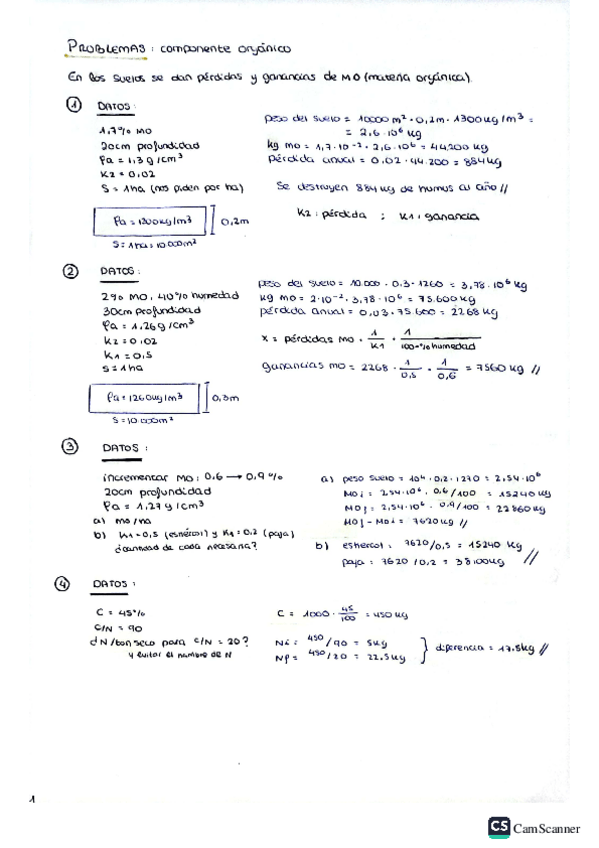 PROBLEMAS: componente orgánico
En los suelos se dan pérdidas y ganancias de MO (materia orgánica).
1 DATOS:
1,7% MO
20cm profundidad
ρa = 1,3 g/cm³
K2 = 0,02
S = 1ha (nos piden por ha)
ρa = 1300kg/m³
0,2m
S = 1ha = 10.000m²
peso del suelo = 10000 m² · 0,2m · 1300kg/m³ =
= 2,6 · 10⁶ kg
kg mo = 1,7 · 10⁻² · 2,6 · 10⁶ = 44200 kg
pérdida anual = 0,02 · 44.200 = 884kg
Se destruyen 884kg de humus al año //
K2: pérdida ; K1: ganancia
2 DATOS:
2% MO, 40% humedad
30cm profundidad
ρa = 1,26 g/cm³
K2 = 0.02
K1 = 0,5
S = 1ha
ρa = 1260kg/m³
0,3m
S = 10.000m²
peso del suelo = 10.000 · 0.3 · 1260 = 3,78 · 10⁶ kg
kg mo = 2·10⁻² · 3,78 · 10⁶ = 75.600kg
pérdida anual = 0,03 · 75.600 = 2268 kg
x = pérdidas mo · 1/K1 · 1/100-%humedad
ganancias mo = 2268 · 1/0,5 · 1/0,6 = 7560 kg //
3 DATOS:
incrementar MO: 0,6 → 0,9%
20cm profundidad
ρa = 1,27 g/cm³
a) mo/ha
b) K1=0,5 (estiércol) y K1=0,2 (paja)
¿cantidad de cada necesaria?
a) peso suelo = 10⁴ · 0,2 · 1270 = 2,54 · 10⁶
MOi = 2,54·10⁶ · 0,6/100 = 15240 kg
MOf = 2,54·10⁶ · 0,9/100 = 22860kg
MOf - MOi = 7620kg //
b) estiércol: 7620/0,5 = 15240 kg
paja: 7620 / 0,2 = 38100kg //
4 DATOS:
C = 45%
C/N = 90
d N/ton seco para C/N = 20?
y evitar el hambre de N
C = 1000 · 45/100 = 450 kg
Ni = 450/90 = 5kg
Nf = 450/20 = 22.5kg
diferencia = 17.5kg //
1
CS CamScanner